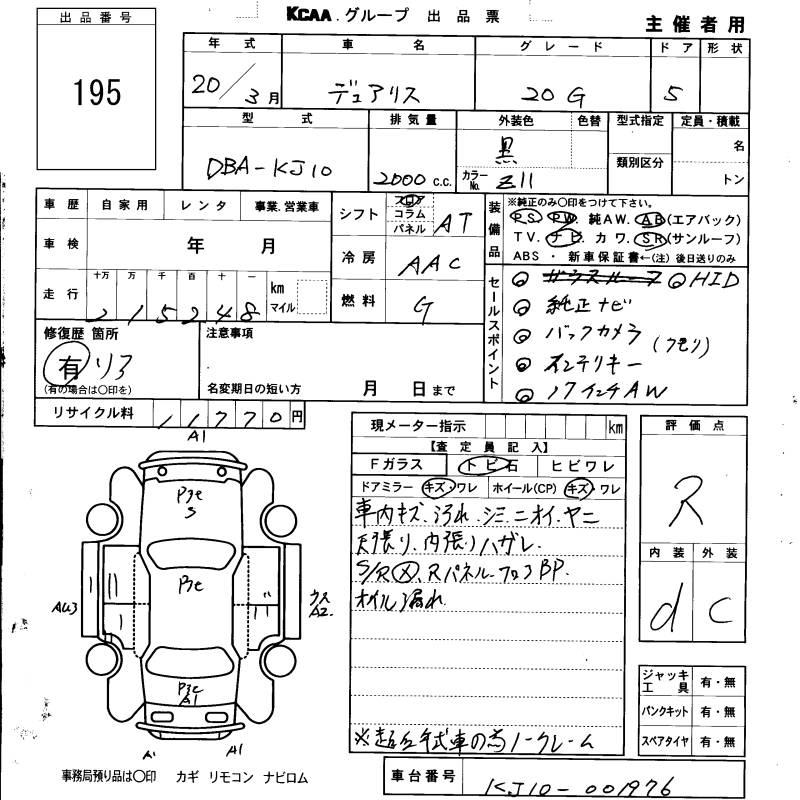 出品番号
195
KCAA.グループ 出品票
主催者用
年式 車名 グレード ドア 形状
20/3月 デュアリス 20G 5
型式 排気量 外装色 色替 型式指定 定員・積載
DBA-KJ10 2000c.c. 黒 名
カラーNo. Z11 類別区分 トン
車歴 自家用 レンタ 事業.営業車
車検 年 月
走行 十万 万 千 百 十 一
215248 km マイル
シフト フロア コラム パネル AT
冷房 AAC
燃料 G
装備品
※純正のみ○印をつけて下さい。
PS. PW. 純AW. AB(エアバック)
TV. ナビ. カワ. SR(サンルーフ)
ABS ・ 新車保証書←(注) 後日送りのみ
セールスポイント
◎ ガラスルーフ ◎HID
◎ 純正ナビ
◎ バックカメラ (クモリ)
◎ インテリキー
◎ 17インチAW
修復歴 箇所
有 リア
(有の場合は○印を)
注意事項
名変期日の短い方 月 日まで
リサイクル料 11770円
現メーター指示 km
【査定員記入】
Fガラス トビ石 ヒビワレ
ドアミラー キズ・ワレ ホイール(CP) キズ・ワレ
車内キズ、汚れ、シミ、ニオイ、ヤニ
天張り、内張りハガレ
S/R X、Rパネル-フロアBP.
オイル漏れ
※超低年式車の為ノークレーム
評価点
R
内装 外装
d C
ジャッキ工具 有・無
パンクキット 有・無
スペアタイヤ 有・無
A1
P3e
S
P3e
AU3
ウス
A2.
P3e
A1
A1 A1
事務局預り品は○印 カギ リモコン ナビロム
車台番号 KJ10-001976